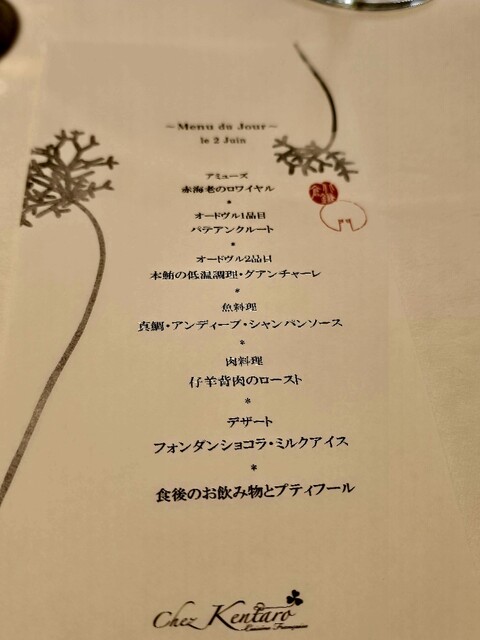 ~Menu du Jour~
le 2 Juin
アミューズ
赤海老のロワイヤル
*
オードヴル1品目
パテアンクルート
*
オードヴル2品目
本鮪の低温調理・グアンチャーレ
*
魚料理
真鯛・アンディーブ・シャンパンソース
*
肉料理
仔羊背肉のロースト
*
デザート
フォンダンショコラ・ミルクアイス
*
食後のお飲み物とプティフール
Chez Kentaro
Cuisine Française